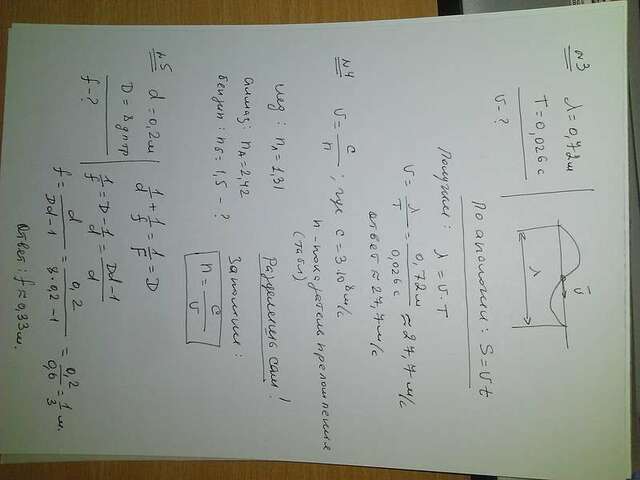 №3
λ = 0,72м
T = 0,026 с
v - ?
v̄
λ
По аналогии: S = v t
Получим: λ = v · T
v = λ/T = 0,72м/0,026с ≈ 27,7 м/с
ответ ≈ 27,7 м/с
№4
v = c/n ; где c = 3·10⁸ м/с
n - показатель преломления
(табл)
лёд: nл = 1,31
алмаз: nА = 2,42
бензин: nБ = 1,5 - ?
Разделишь сам!
Запомним:
n = c/v
№5
d = 0,2м
D = 8 дптр
f - ?
1/d + 1/f = 1/F = D
1/f = D - 1/d = Dd-1/d
f = d/Dd-1 = 0,2/8·0,2-1 = 0,2/0,6 = 1/3 м.
Ответ: f ≈ 0,33м.